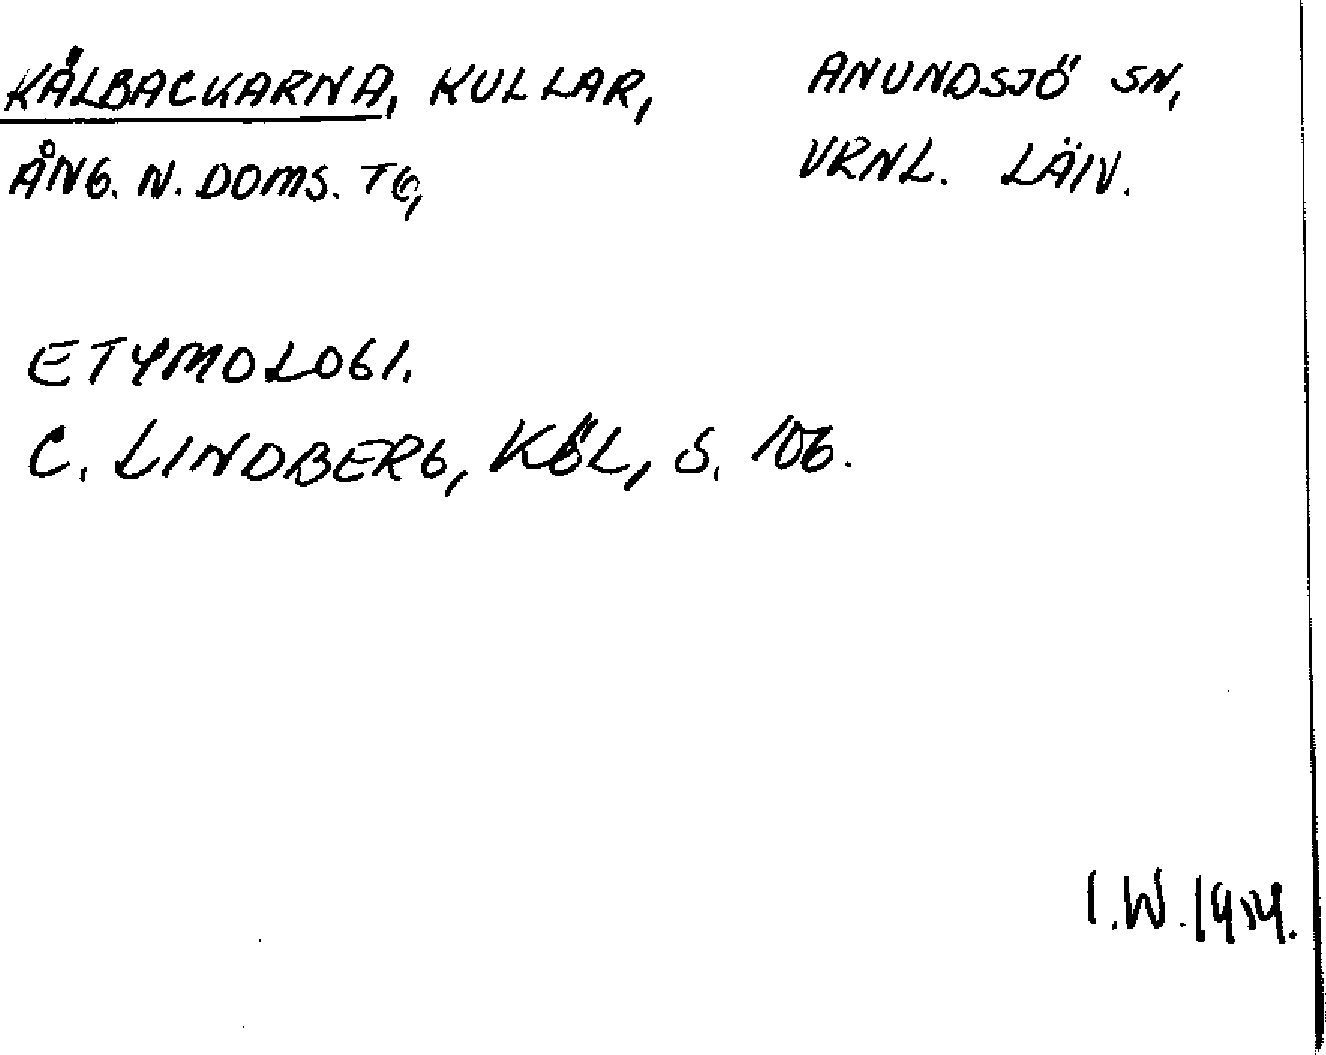 KÅLBACKARNA, KULLAR, ANUNDSJÖ SN,
ÅNG. N. DOMS. TG, VRNL. LÄN.
ETYMOLOGI.
C. LINDBERG, KÖL, S. 106.
I.W.